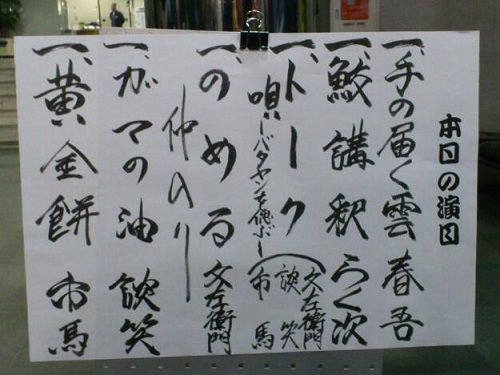 本日の演目
一、手の届く雲 春吾
一、鮫講釈 らく次
一、トーク(文左衛門 談笑 市馬
唄ーバタヤンを偲ぶー
一、のめる 文左衛門
仲入り
一、ガマの油 談笑
一、黄金餅 市馬